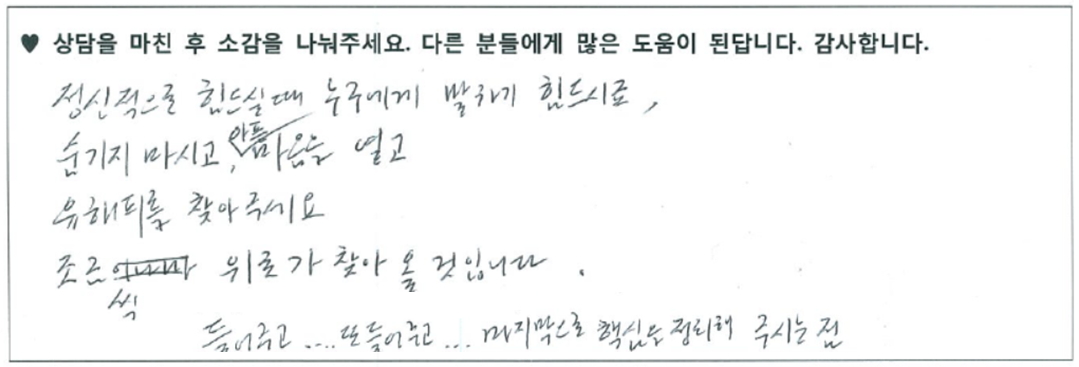 ♥ 상담을 마친 후 소감을 나눠주세요. 다른 분들에게 많은 도움이 된답니다. 감사합니다.
정신적으로 힘드실때 누구에게 말하기 힘드시죠,
숨기지 마시고, 아픈 마음을 열고
유해피를 찾아주세요
조금씩 위로가 찾아 올 것입니다.
들어주고 .... 또 들어주고 ... 마지막으로 핵심을 정리해 주시는 점